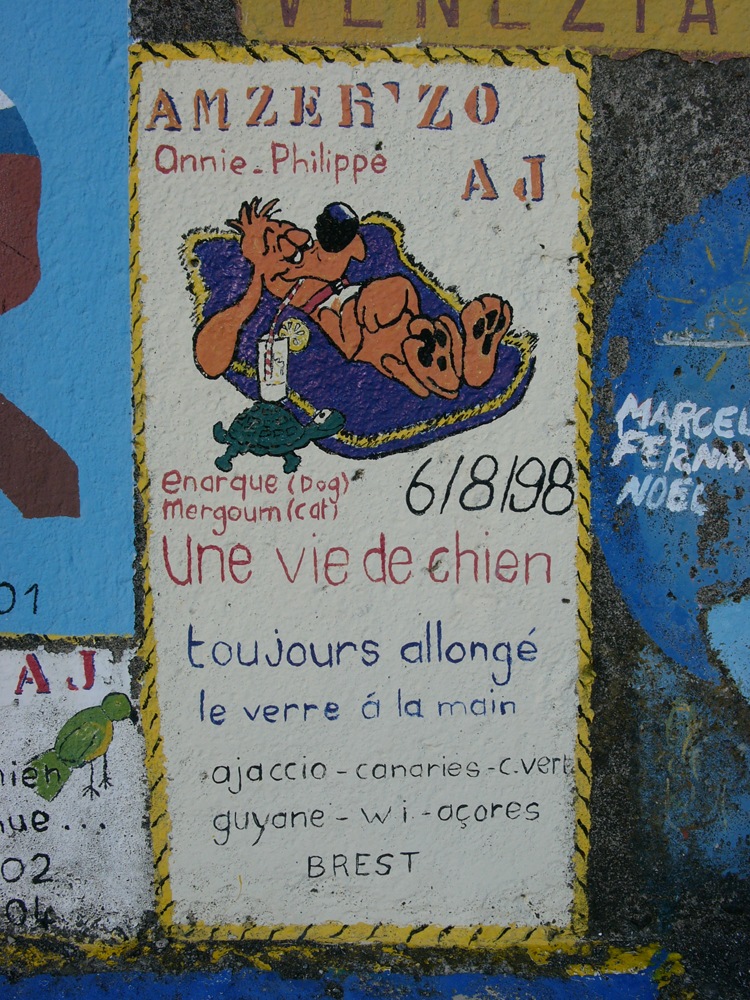 VENEZIA
AMZER'ZO
Annie-Philippe
AJ
enarque (Dog)
mergoum (cat)
6/8/98
une vie de chien
toujours allongé
le verre á la main
ajaccio - canaries - c.vert
guyane - w i - açores
BREST
MARCEL
NOËL
01
AJ
02
04